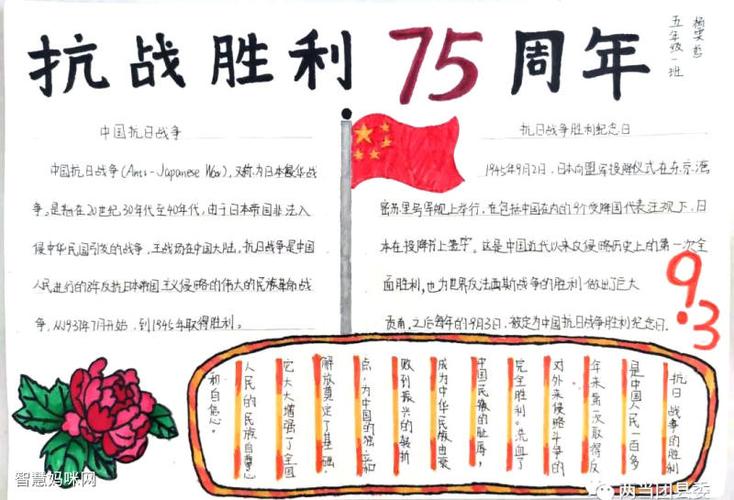 抗战胜利75周年
五年级一班
中国抗日战争
中国抗日战争(Anti-Japanese War),又称为日本侵华战
争。是指在20世纪30年代至40年代,由于日本帝国非法入
侵中华民国引发的战争,主战场在中国大陆。抗日战争是中国
人民进行的8年反抗日本帝国主义侵略的伟大的民族革命战
争,从1937年7月开始,到1945年取得胜利。
抗日战争胜利纪念日
1945年9月2日,日本向盟军投降仪式在东京湾
密苏里号军舰上举行,在包括中国在内的9个受降国代表注视下,日
本在投降书上签字。这是中国近代以来反侵略历史上的第一次全
面胜利,也为世界反法西斯战争的胜利做出了巨大
贡献。之后每年的9月3日,被定为中国抗日战争胜利纪念日。
9.3
抗日战争的胜利
是中国人民一百多
年来第一次取得反
对外来侵略斗争的
完全胜利。洗血了
中国民族的耻辱,
成为中华民族由衰
败到振兴的转折
点,为中国的独立和
解放奠定了基础,
它大大增强了全国
人民的民族自尊心
和自信心。
智慧妈咪网
两当团县委